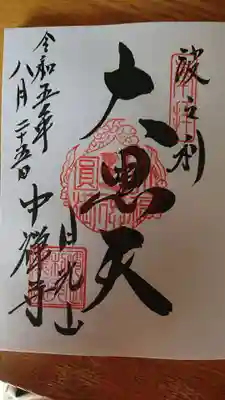 波之利
大黒天
日光山
中禅寺
令和五年
八月二十五日